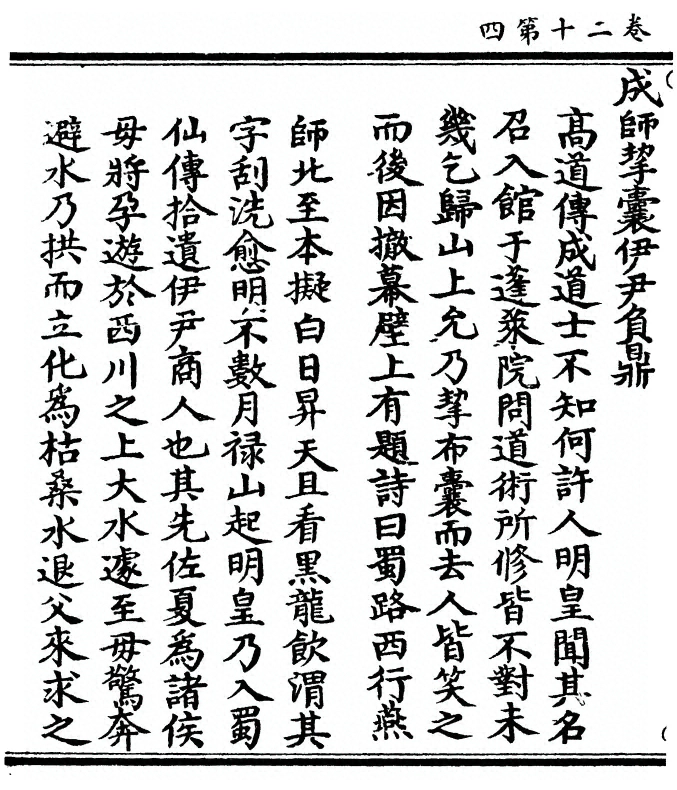 卷二十第四
成師挈囊伊尹負鼎
高道傳成道士不知何許人明皇聞其名
召入館于蓬萊院問道術所修皆不對未
幾乞歸山上允乃挈布囊而去人皆笑之
而後因撤幕壁上有題詩曰蜀路西行燕
師北至本擬白日昇天且看黑龍飲渭其
字刮洗愈明不數月禄山起明皇乃入蜀
仙傳拾遺伊尹商人也其先佐夏為諸侯
毋將孕遊於西川之上大水遽至毋驚奔
避水乃拱而立化為枯桑水退父來求之